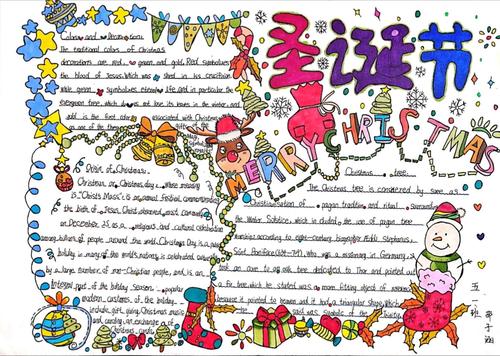 圣诞节
MERRY CHRISTMAS
Colors and Decorations
The traditional colors of Christmas
decorations are red, green and gold. Red symbolizes
the blood of Jesus, which was shed in his crucifixion
while green symbolizes eternal life and in particular the
evergreen tree, which does not lose its leaves in the winter and
gold is the first color associated with Christmas
as one of the three
Origin of Christmas:
Christmas or Christmas day, meaning
is "Christ's Mass" is an annual festival commemorating
the birth of Jesus Christ observed most commonly
on December 25 as a religious and cultural celebration
among billions of people around the world. Christmas Day is a
holiday in many of the world's nations, is celebrated
by a large number of non-Christian people, and is an
integral part of the holiday season. popular
modern customs of the holiday
include gift giving, Christmas music
and caroling, an exchange of
Christmas cards
Christmas tree
The Christmas tree is considered by some as
Christianisation of pagan tradition and ritual surrounding
the Winter Solstice, which included the use of pagan tree
worship; according to eighth-century biographer Æddi Stephanus,
Saint Boniface (634-709), who was a missionary in Germany,
took an axe to an oak tree dedicated to Thor and pointed out
a fir tree, which he stated was a more fitting object of reverence
because it pointed to heaven and it had a triangular shape, which
he said was symbolic of the Trinity.
五一班